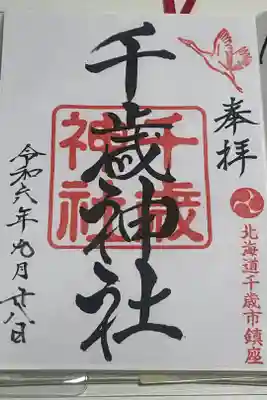 奉拝
北海道千歳市鎮座
千歳神社
千歳
神社
令和六年九月廿八日